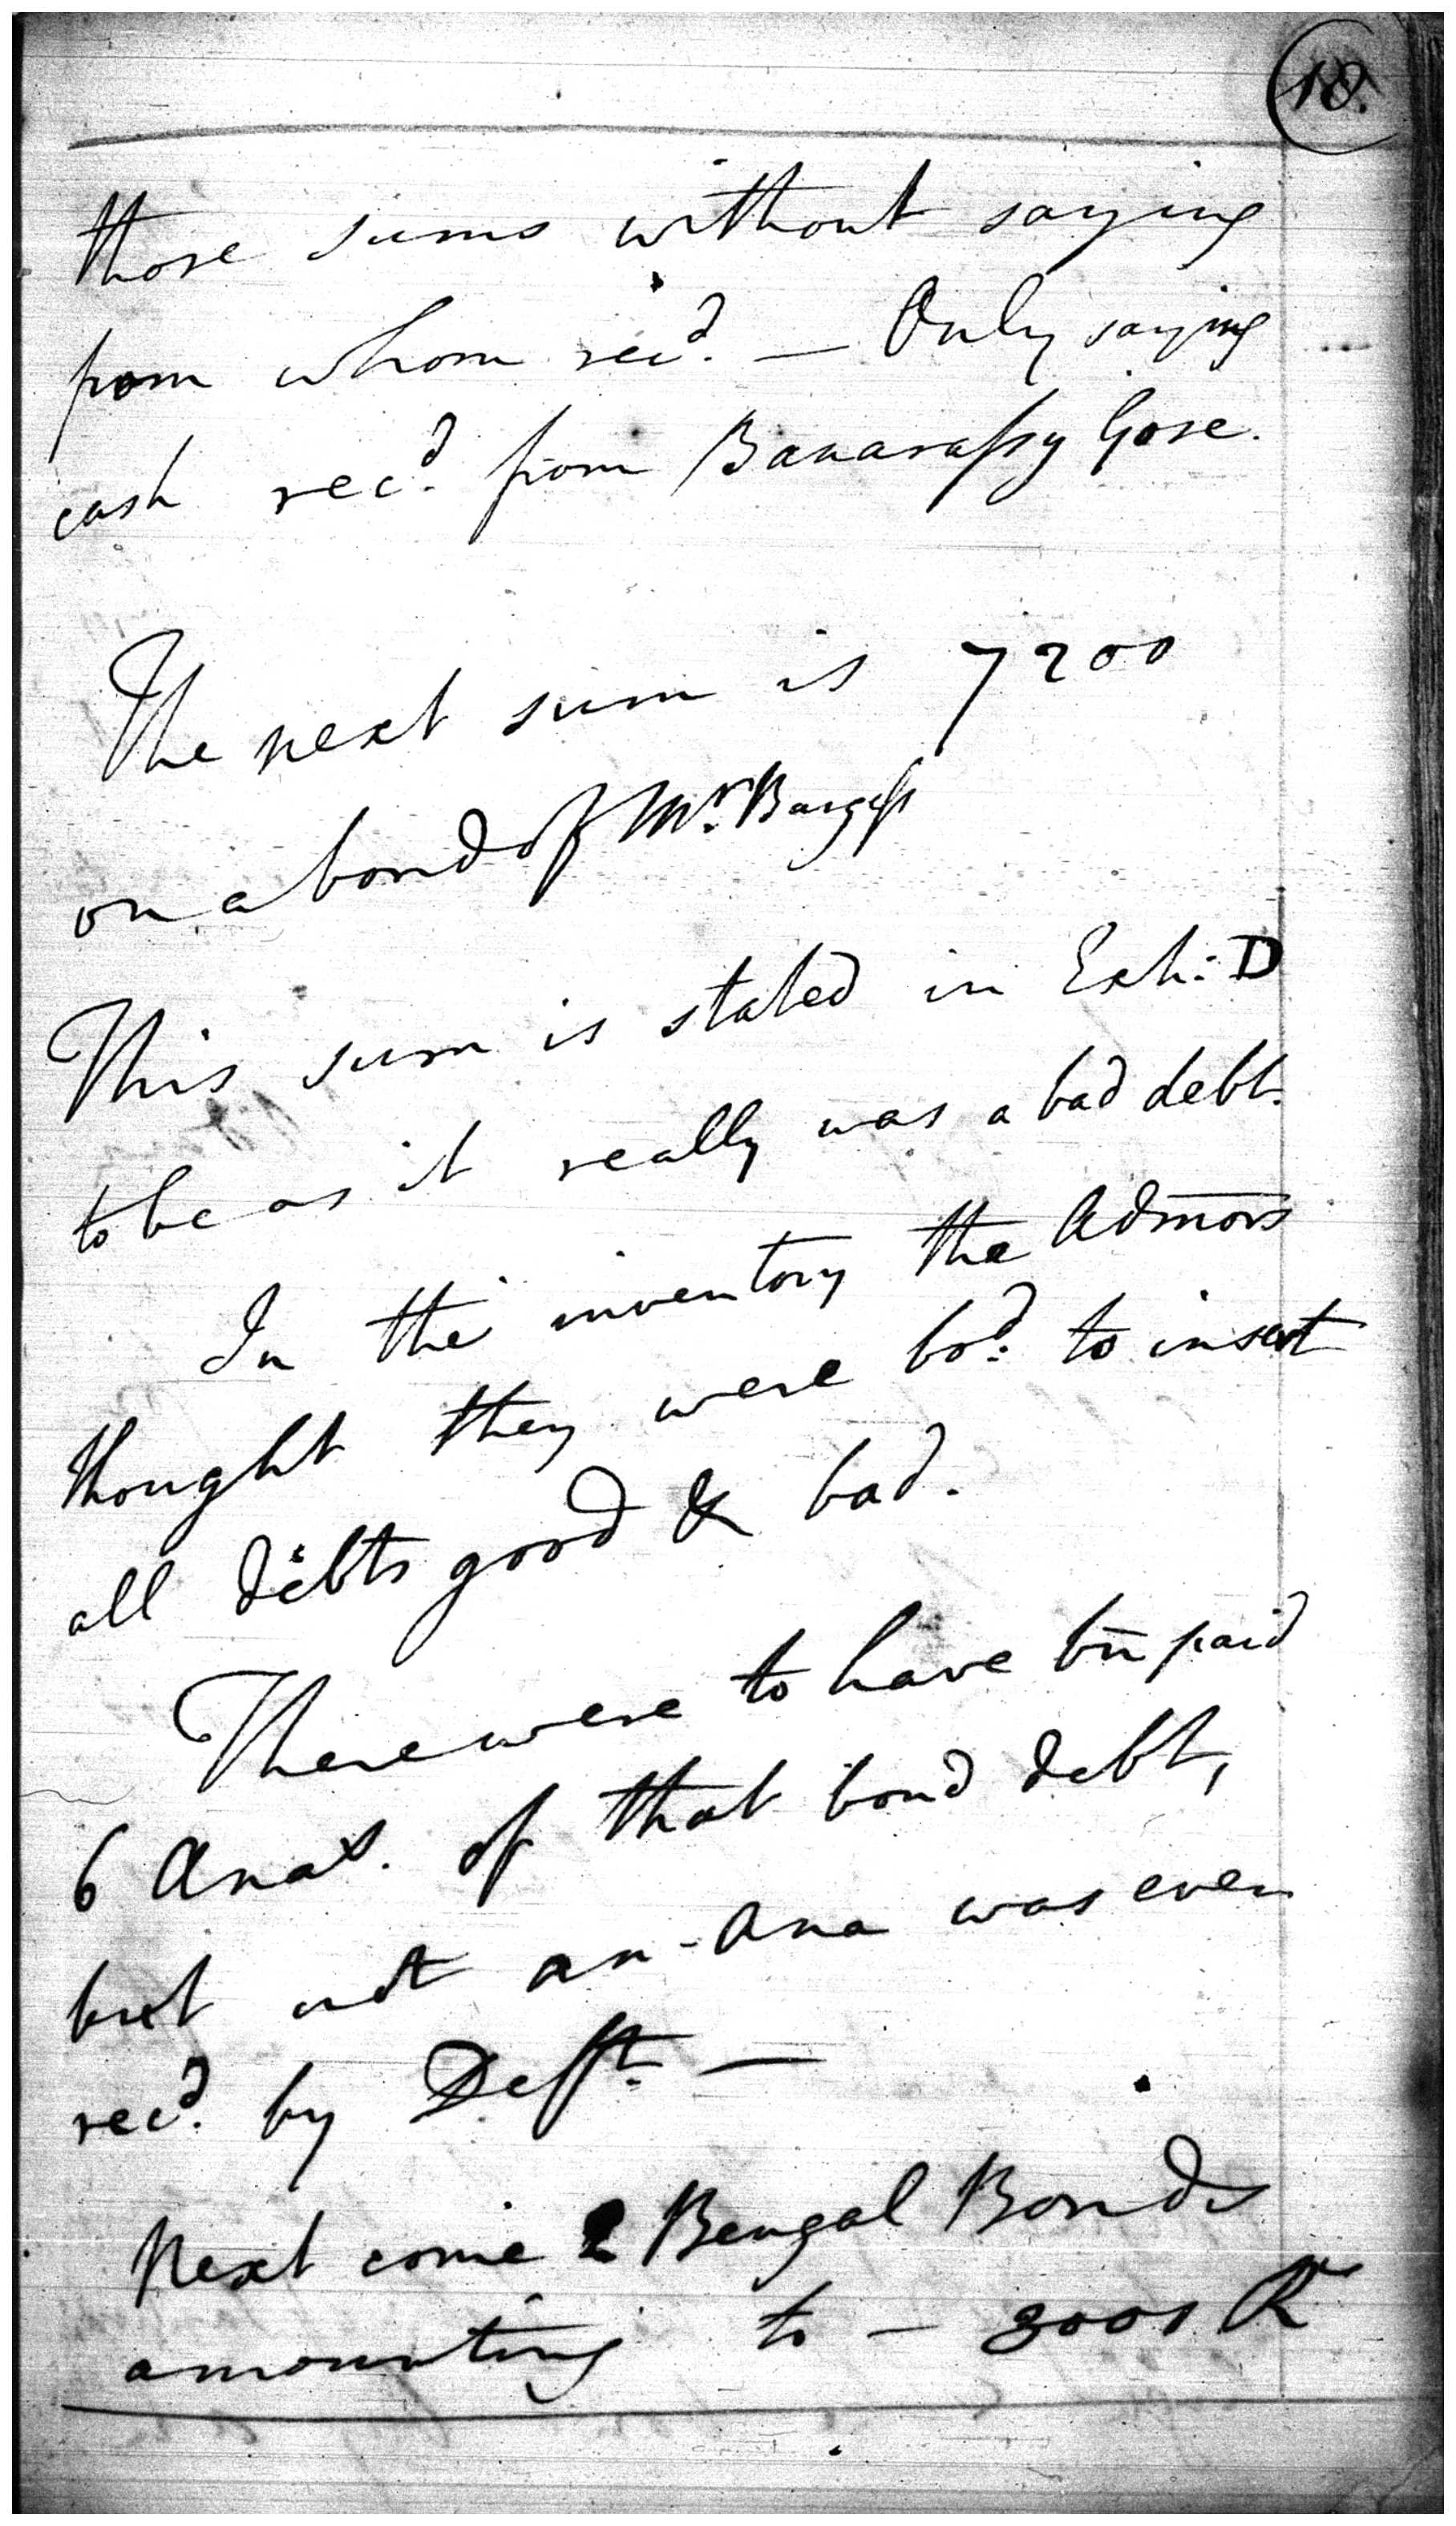 18.
those sums without saying
from whom rec<sup>d</sup>. — Only saying
cash rec<sup>d</sup>. from Banarassy Gose.
The next sum is 7200
on a bond of M<sup>r</sup>. Burgess
This sum is stated in Exh: D
to be as it really was a bad debt.
In the inventory the Admors
thought they were bo<sup>d</sup>: to insert
all debts good & bad.
There were to have bn paid
6 Anas. of that bond debt,
but not an - Ana was even
rec<sup>d</sup>. by Deft. —
Next come 2 Bengal Bonds
amounting to — 3000 R